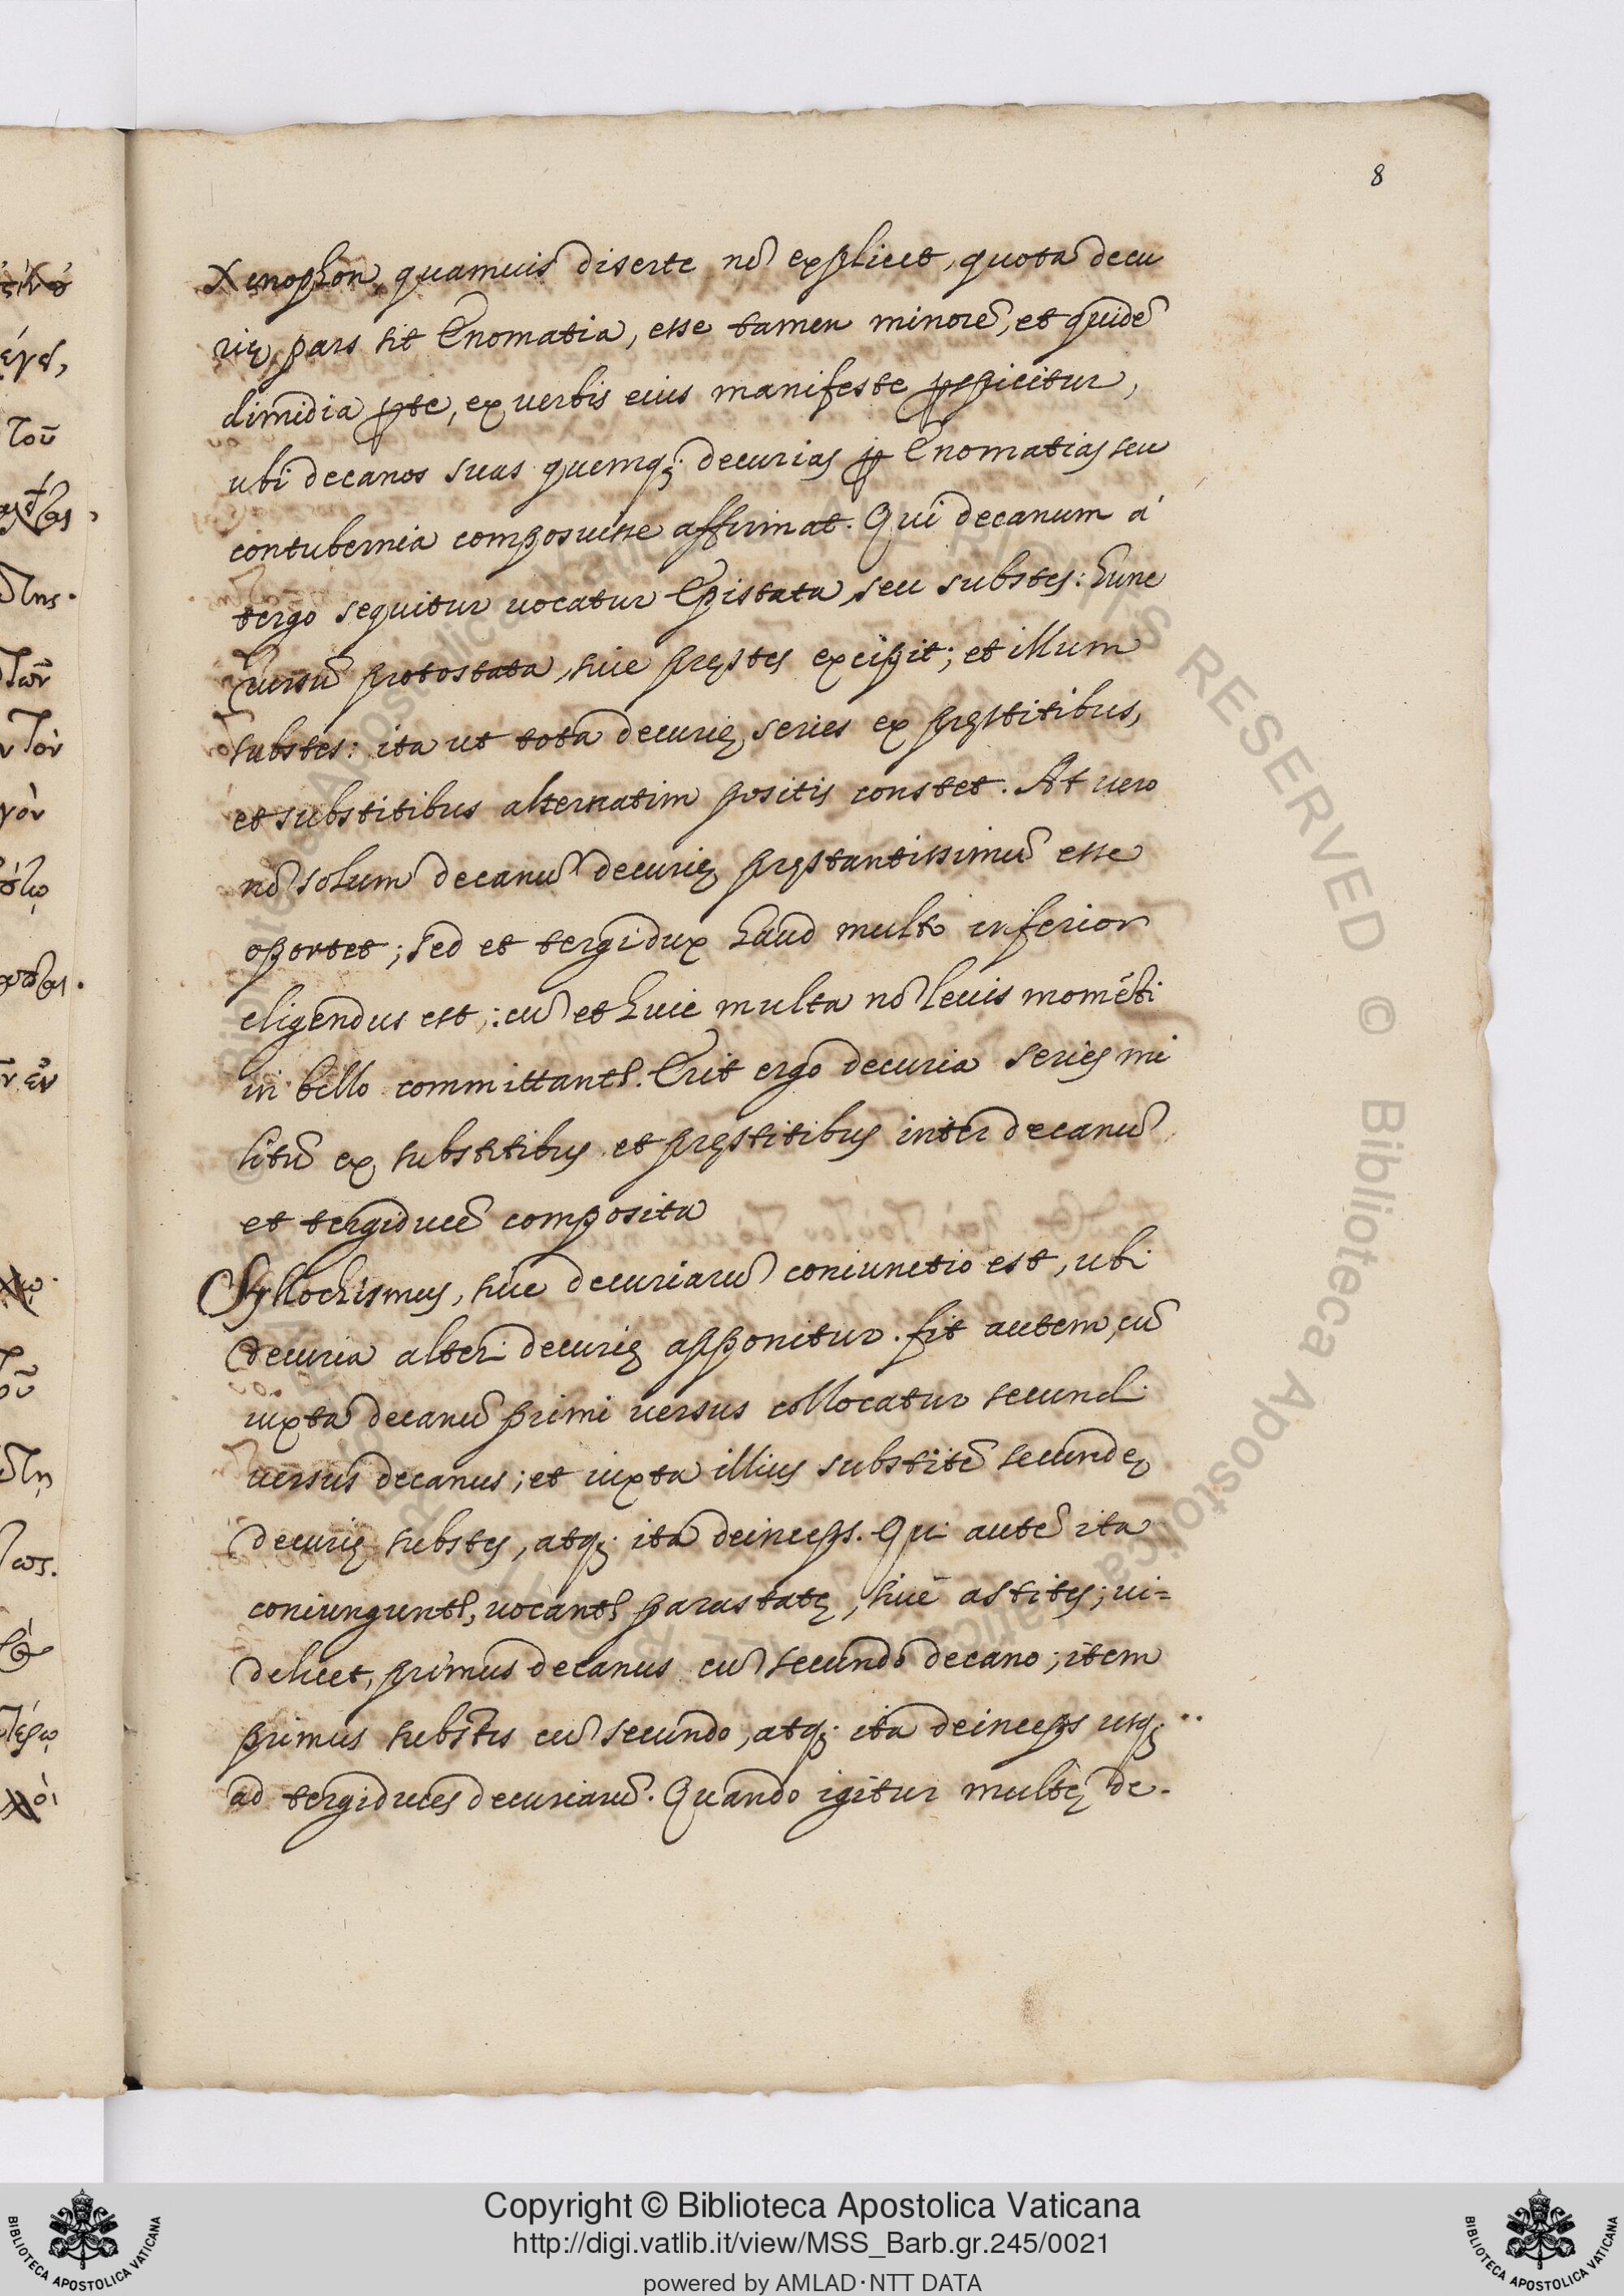 8
Xenophon, quamuis diserte nō explicet, quota decu
rię pars sit Enomatia, esse tamen minorē, et quidē
dimidia ꝑte, ex verbis eius manifeste ꝑspicitur,
ubi decanos suas quemqꝫ decurias ꝑ Enomatias seu
contubernia composuisse affirmat. Qui decanum á
tergo sequitur uocatur Epistata, seu substes: hunc
rursū protostata, siue pręstes excipit; et illum
substes: ita ut tota decurię series ex pręstitibus,
et substitibus alternatim positis constet. At uero
nō solum decanū decurię pręstantissimū esse
oportet; sed et tergidux haud multo inferior
eligendus est; cū et huic multa nō leuis momēti
in bello committantr. Erit ergo decuria series mi
litū ex substitibus et pręstitibus inter decanū
et tergiducē composita
Syllochismus, siue decuriarū coniunctio est, ubi
decuria alteri decurię apponitur. fit autem, cū
iuxta decanū primi uersus collocatur secundi
uersus decanus; et iuxta illius substitē secundę
decurię substes, atqꝫ ita deinceps. Qui autē ita
coniunguntr, uocantr parastatę, siue astites; ui=
delicet, primus decanus cū secundo decano; item
primus substis cū secundo, atqꝫ ita deinceps usqꝫ
ad tergiduces decuriarū. Quando igitur multę de-
τοῦ
τῶν
τὸν
© Biblioteca Apostolica Vaticana ALL RIGHTS RESERVED © Biblioteca Apostolica Vaticana ALL RIGHTS RESERVED
Copyright © Biblioteca Apostolica Vaticana
http://digi.vatlib.it/view/MSS_Barb.gr.245/0021
powered by AMLAD·NTT DATA
BIBLIOTECA APOSTOLICA VATICANA
BIBLIOTECA APOSTOLICA VATICANA